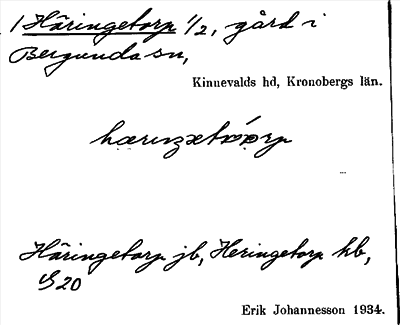 1 Häringetorp 1/2, gård i
Bergunda sn,
Kinnevalds hd, Kronobergs län.
Häringetorp jb, Heringetorp kb,
S 20
Erik Johannesson 1934.